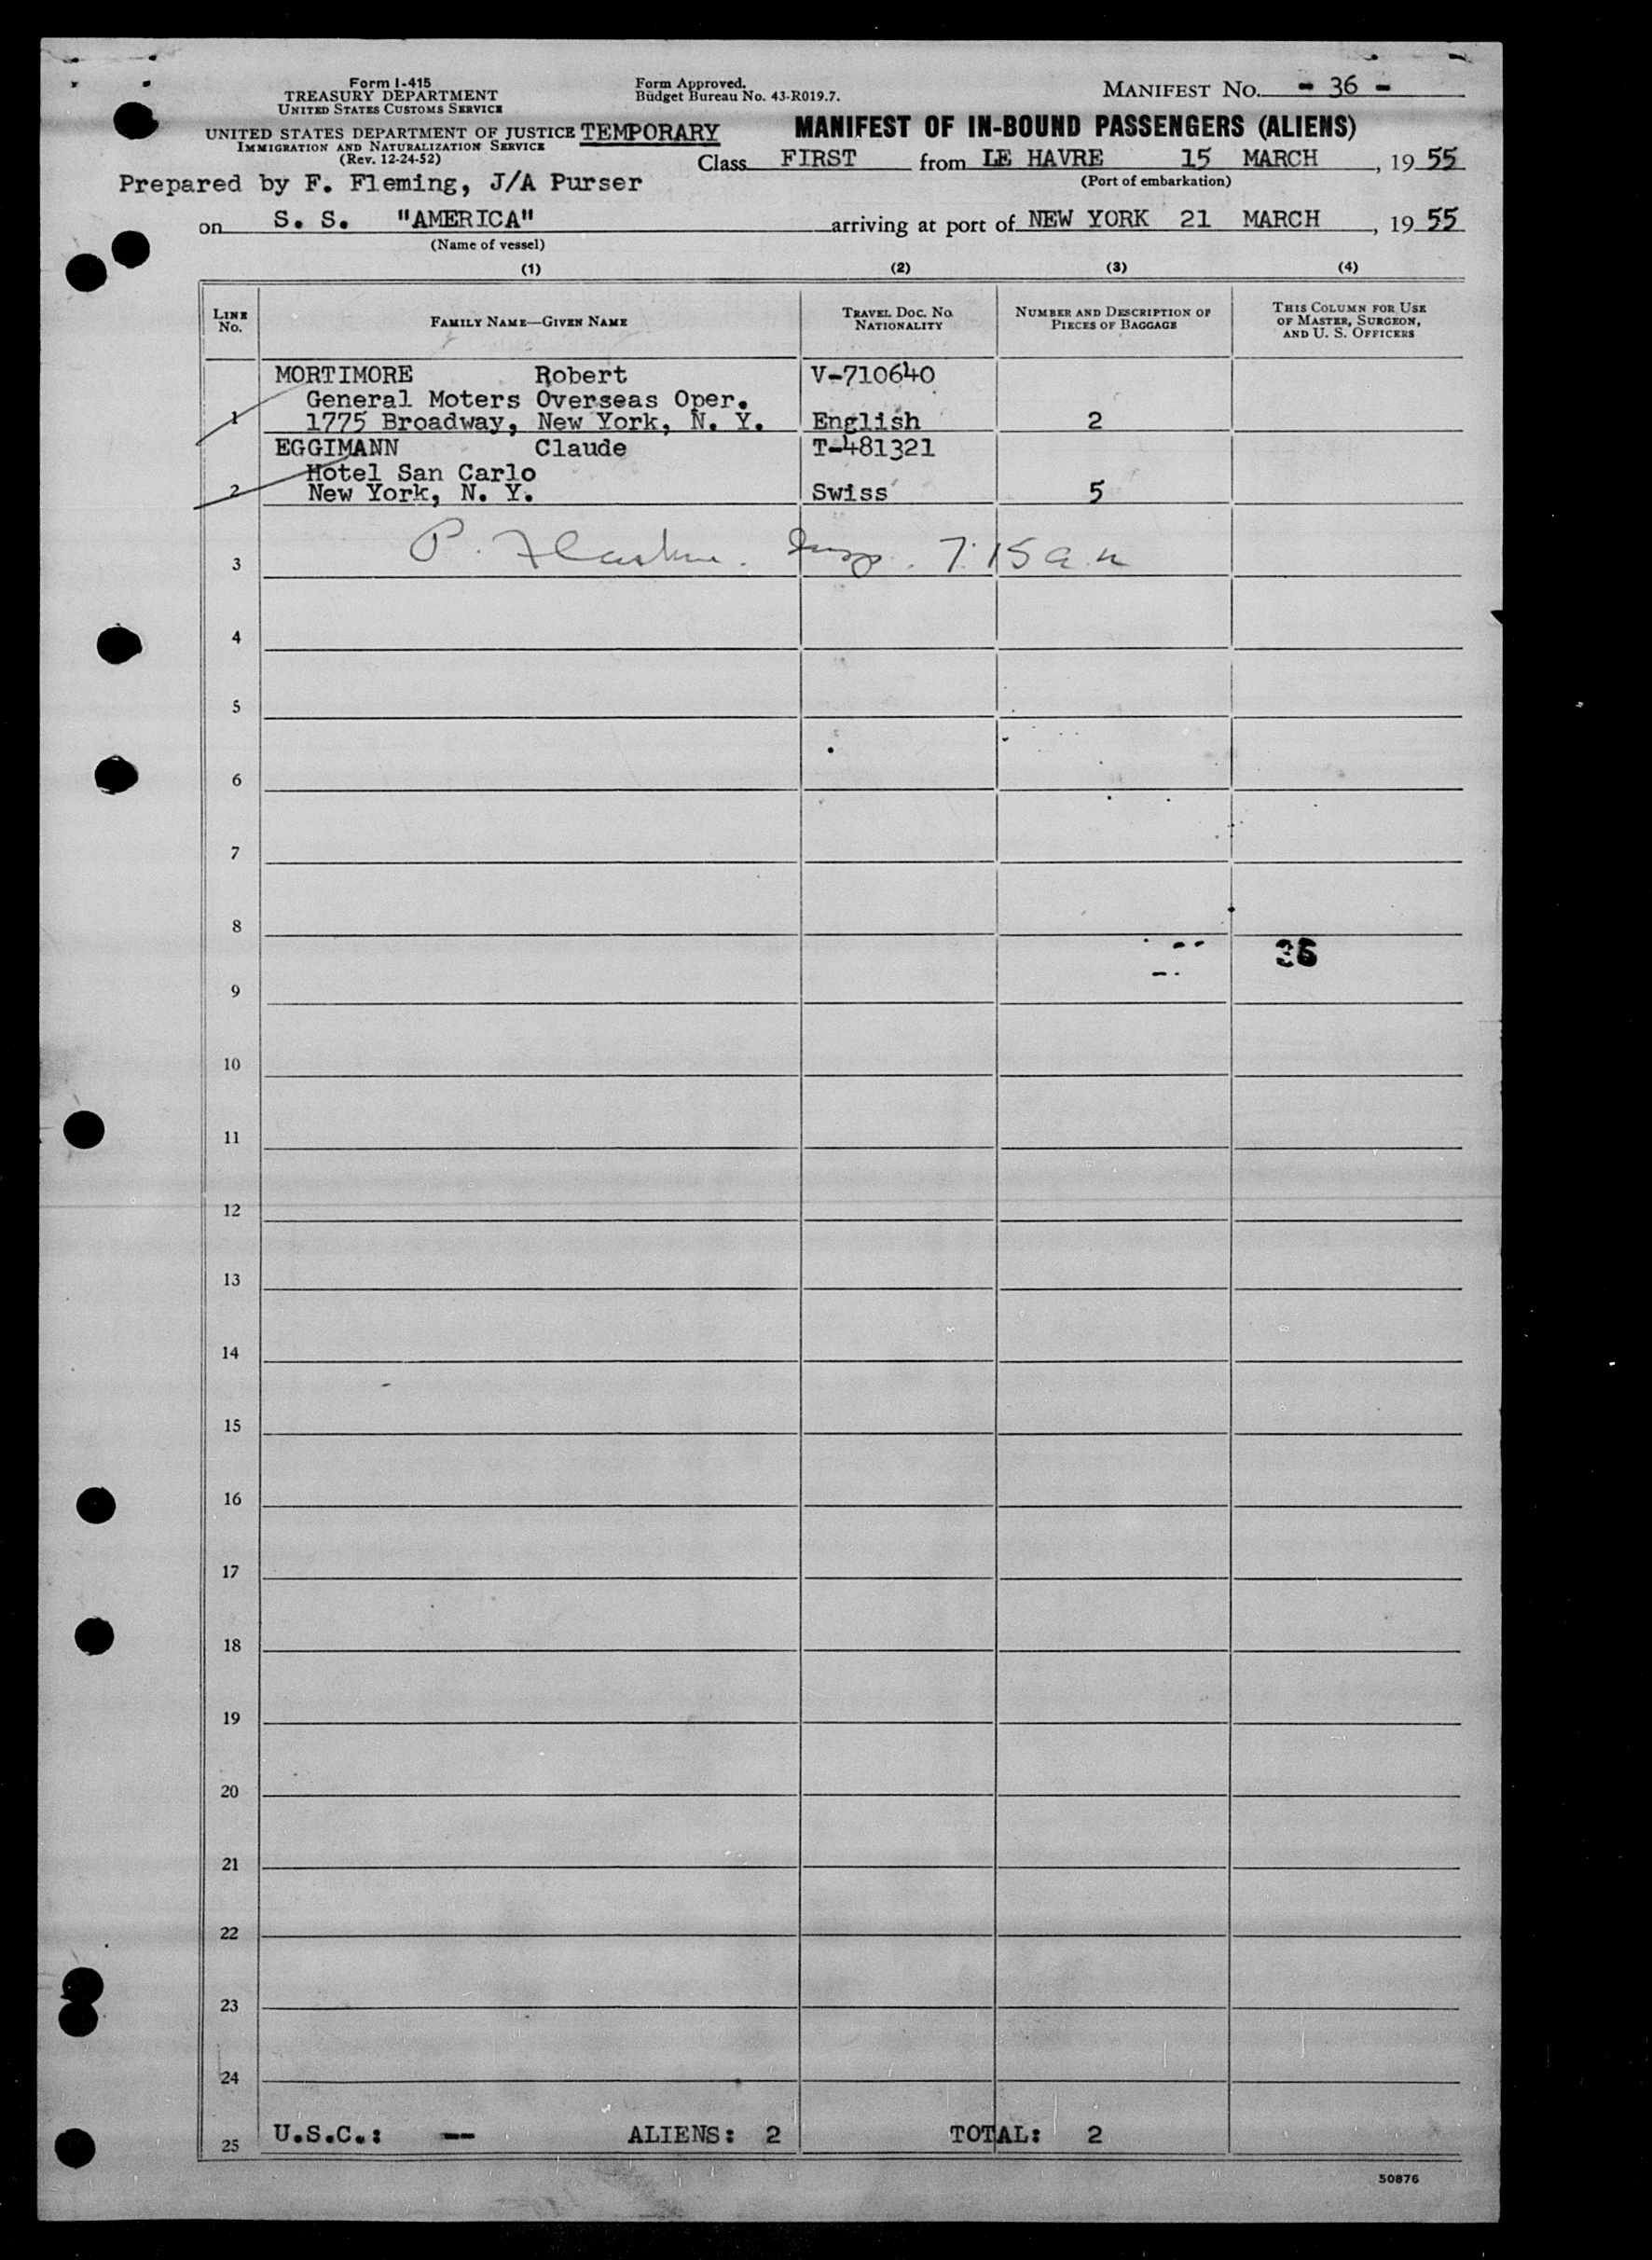 Form I-415
TREASURY DEPARTMENT
UNITED STATES CUSTOMS SERVICE
Form Approved.
Budget Bureau No. 43-R019.7.
MANIFEST No. - 36 -
UNITED STATES DEPARTMENT OF JUSTICE
IMMIGRATION AND NATURALIZATION SERVICE
(Rev. 12-24-52)
TEMPORARY
MANIFEST OF IN-BOUND PASSENGERS (ALIENS)
Class FIRST from LE HAVRE 15 MARCH, 1955
(Port of embarkation)
Prepared by F. Fleming, J/A Purser
on S. S. "AMERICA" arriving at port of NEW YORK 21 MARCH, 1955
(Name of vessel)
(1) (2) (3) (4)
LINE No.
FAMILY NAME—GIVEN NAME
TRAVEL DOC. No. NATIONALITY
NUMBER AND DESCRIPTION OF PIECES OF BAGGAGE
THIS COLUMN FOR USE OF MASTER, SURGEON, AND U. S. OFFICERS
MORTIMORE Robert V-710640
General Moters Overseas Oper.
1 1775 Broadway, New York, N. Y. English 2
EGGIMANN Claude T-481321
Hotel San Carlo
2 New York, N. Y. Swiss 5
P. 7:15 a.m
3
4
5
6
7
8
36
9
10
11
12
13
14
15
16
17
18
19
20
21
22
23
24
25 U.S.C.: -- ALIENS: 2 TOTAL: 2
50876